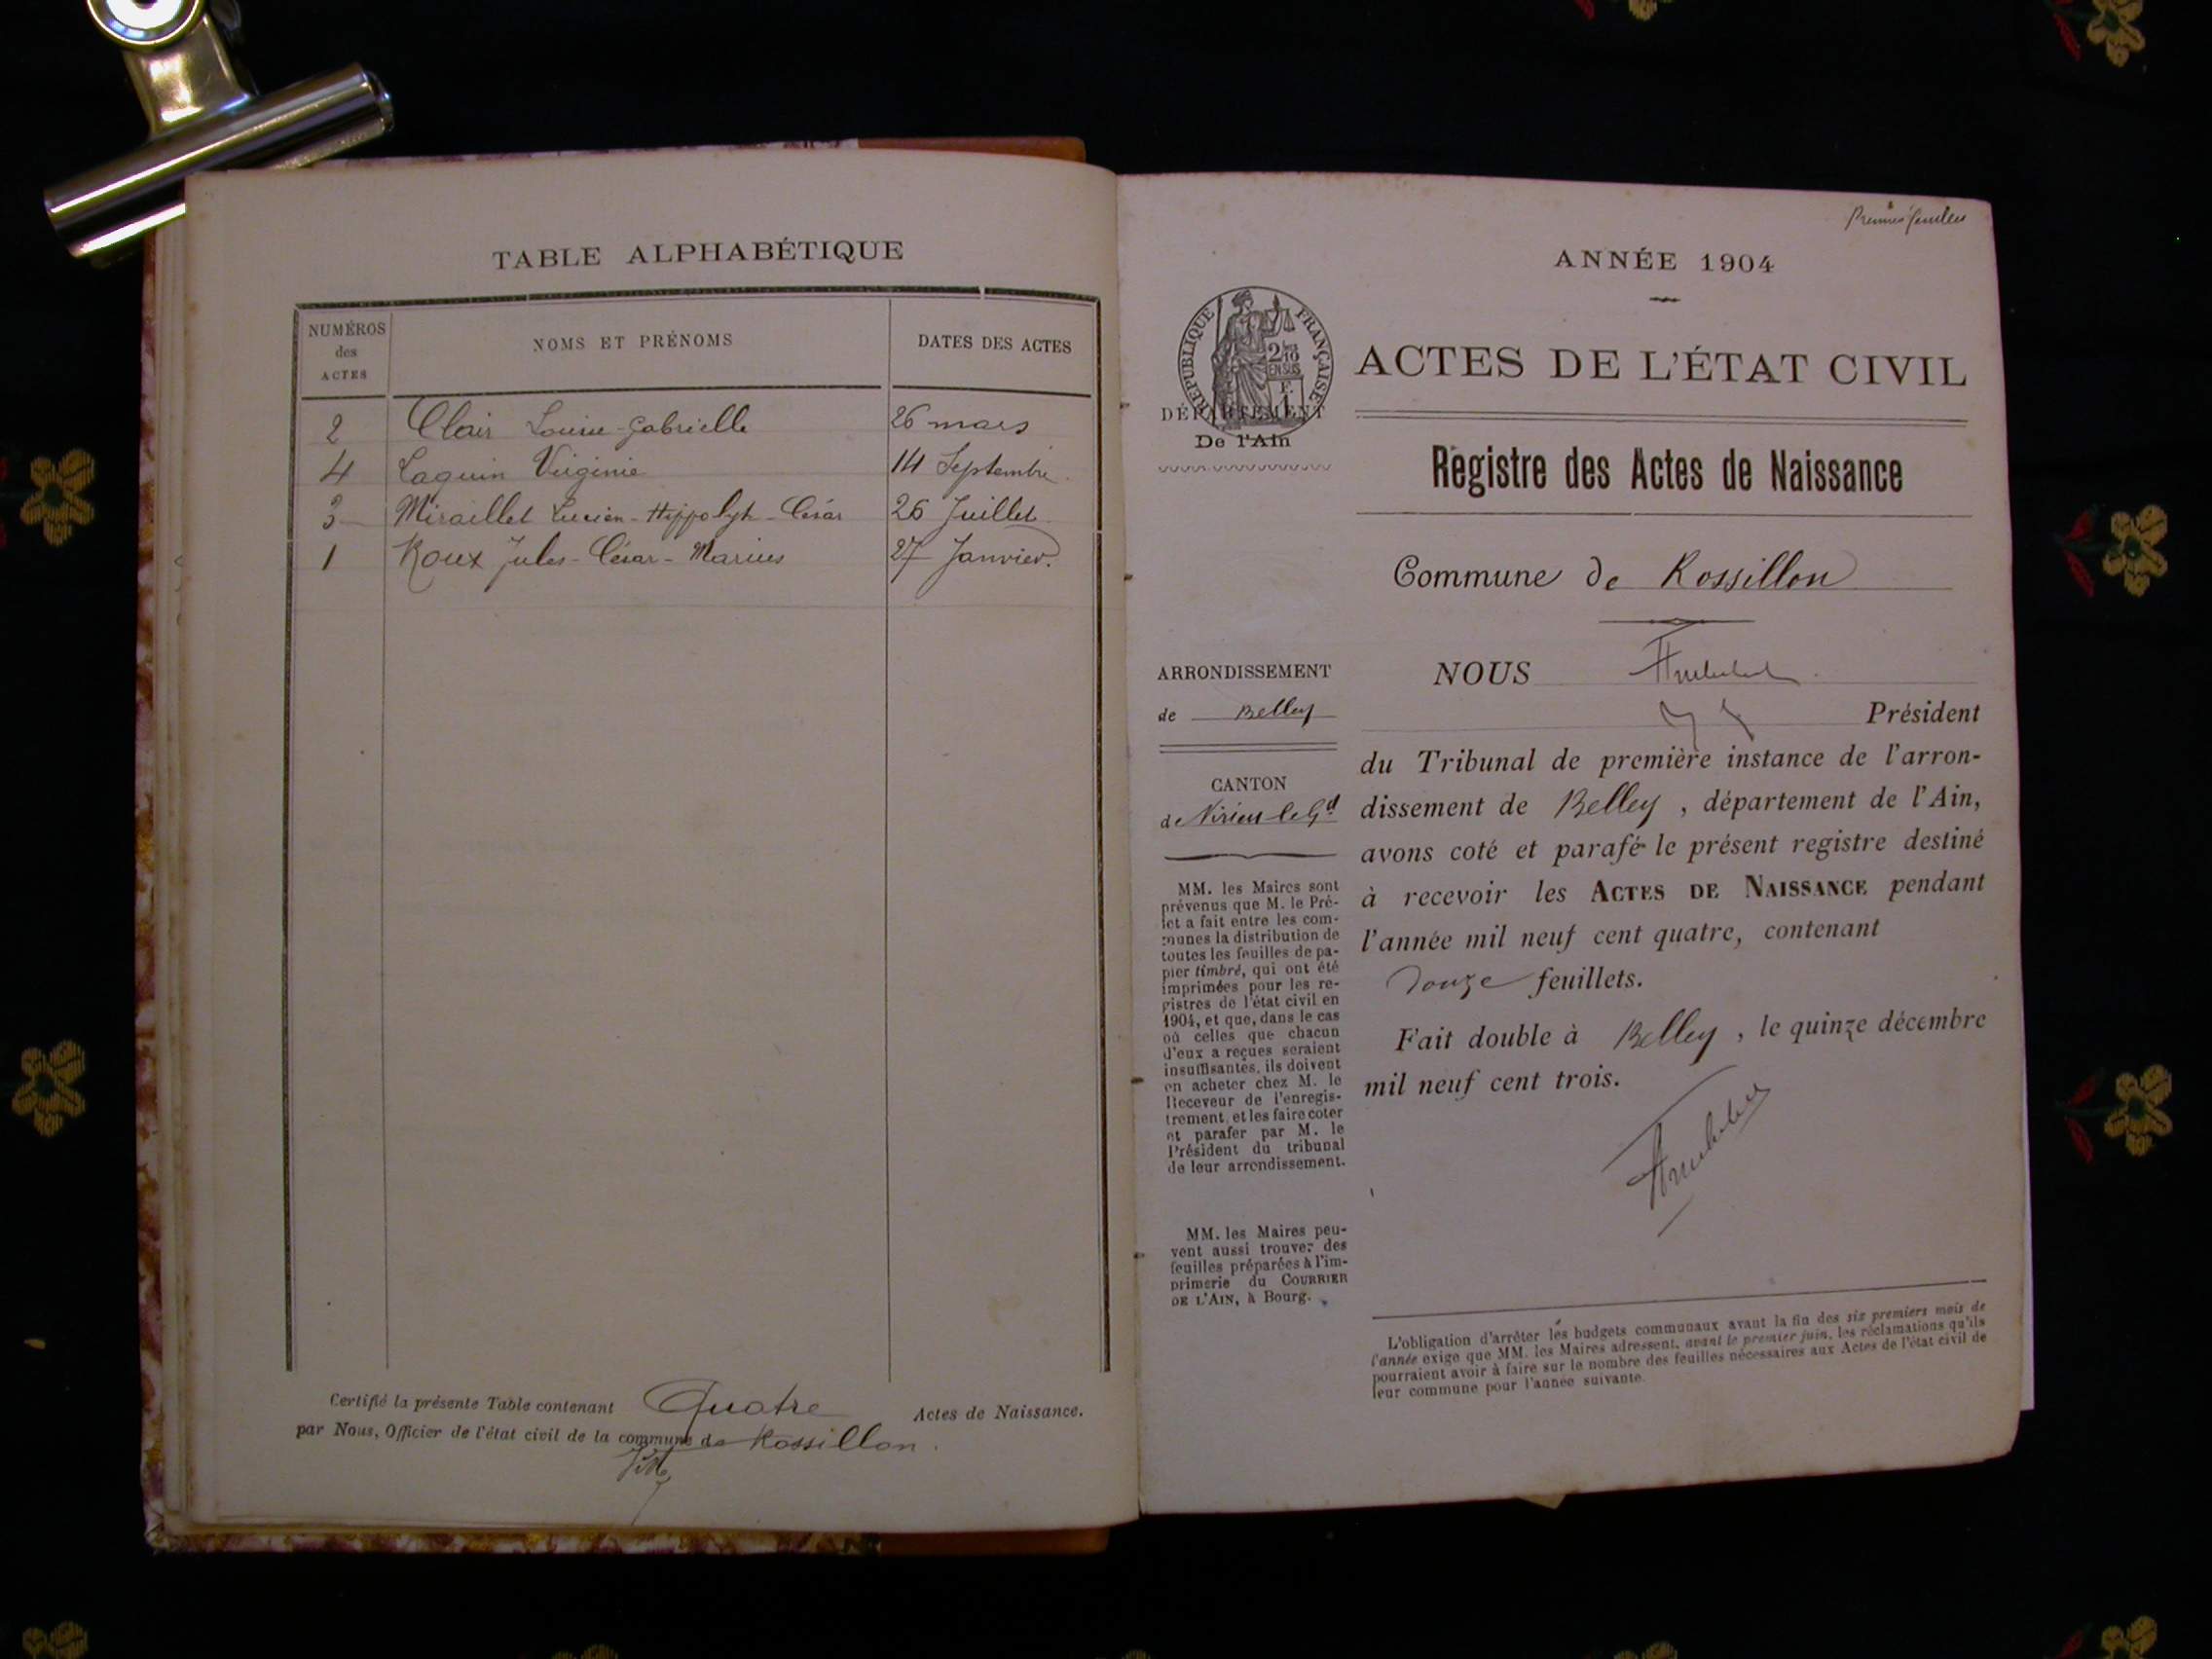 TABLE ALPHABÉTIQUE
NUMÉROS des ACTES
NOMS ET PRÉNOMS
DATES DES ACTES
2 Clair Louise-Gabrielle 26 mars
4 Laquin Virginie 14 Septembre
3 Miraillet Lucien-Hippolyte-César 26 Juillet
1 Roux Jules-César-Marius 27 Janvier.
Certifié la présente Table contenant Quatre Actes de Naissance.
par Nous, Officier de l'état civil de la commune de Rossillon.
ANNÉE 1904
RÉPUBLIQUE FRANÇAISE
2/10 EN SUS
DÉPARTEMENT
De l'Ain
ACTES DE L'ÉTAT CIVIL
Registre des Actes de Naissance
Commune de Rossillon
ARRONDISSEMENT
de Belley
CANTON
de Virieu-le-Gd
MM. les Maires sont
prévenus que M. le Pré-
fet a fait entre les com-
munes la distribution de
toutes les feuilles de pa-
pier timbré, qui ont été
imprimées pour les re-
gistres de l'état civil en
1904, et que, dans le cas
où celles que chacun
d'eux a reçues seraient
insuffisantes, ils doivent
en acheter chez M. le
Receveur de l'enregis-
trement, et les faire coter
et parafer par M. le
Président du tribunal
de leur arrondissement.
MM. les Maires peu-
vent aussi trouver des
feuilles préparées à l'im-
primerie du COURRIER
DE L'AIN, à Bourg.
NOUS
Président
du Tribunal de première instance de l'arron-
dissement de Belley, département de l'Ain,
avons coté et parafé le présent registre destiné
à recevoir les ACTES DE NAISSANCE pendant
l'année mil neuf cent quatre, contenant
douze feuillets.
Fait double à Belley, le quinze décembre
mil neuf cent trois.
L'obligation d'arrêter les budgets communaux avant la fin des six premiers mois de
l'année exige que MM. les Maires adressent, avant le premier juin, les réclamations qu'ils
pourraient avoir à faire sur le nombre des feuilles nécessaires aux Actes de l'état civil de
leur commune pour l'année suivante.